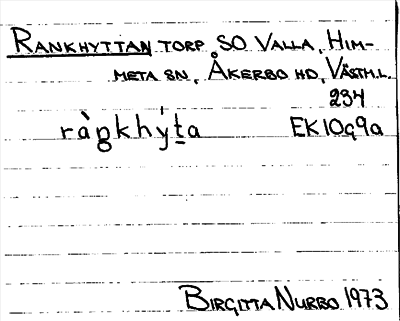 RANKHYTTAN TORP SO VALLA, HIM-
META SN, ÅKERBO HD, VÄSTM.L.
234
ràŋkhý̱ta EK10g9a
BIRGITTA NURBO 1973